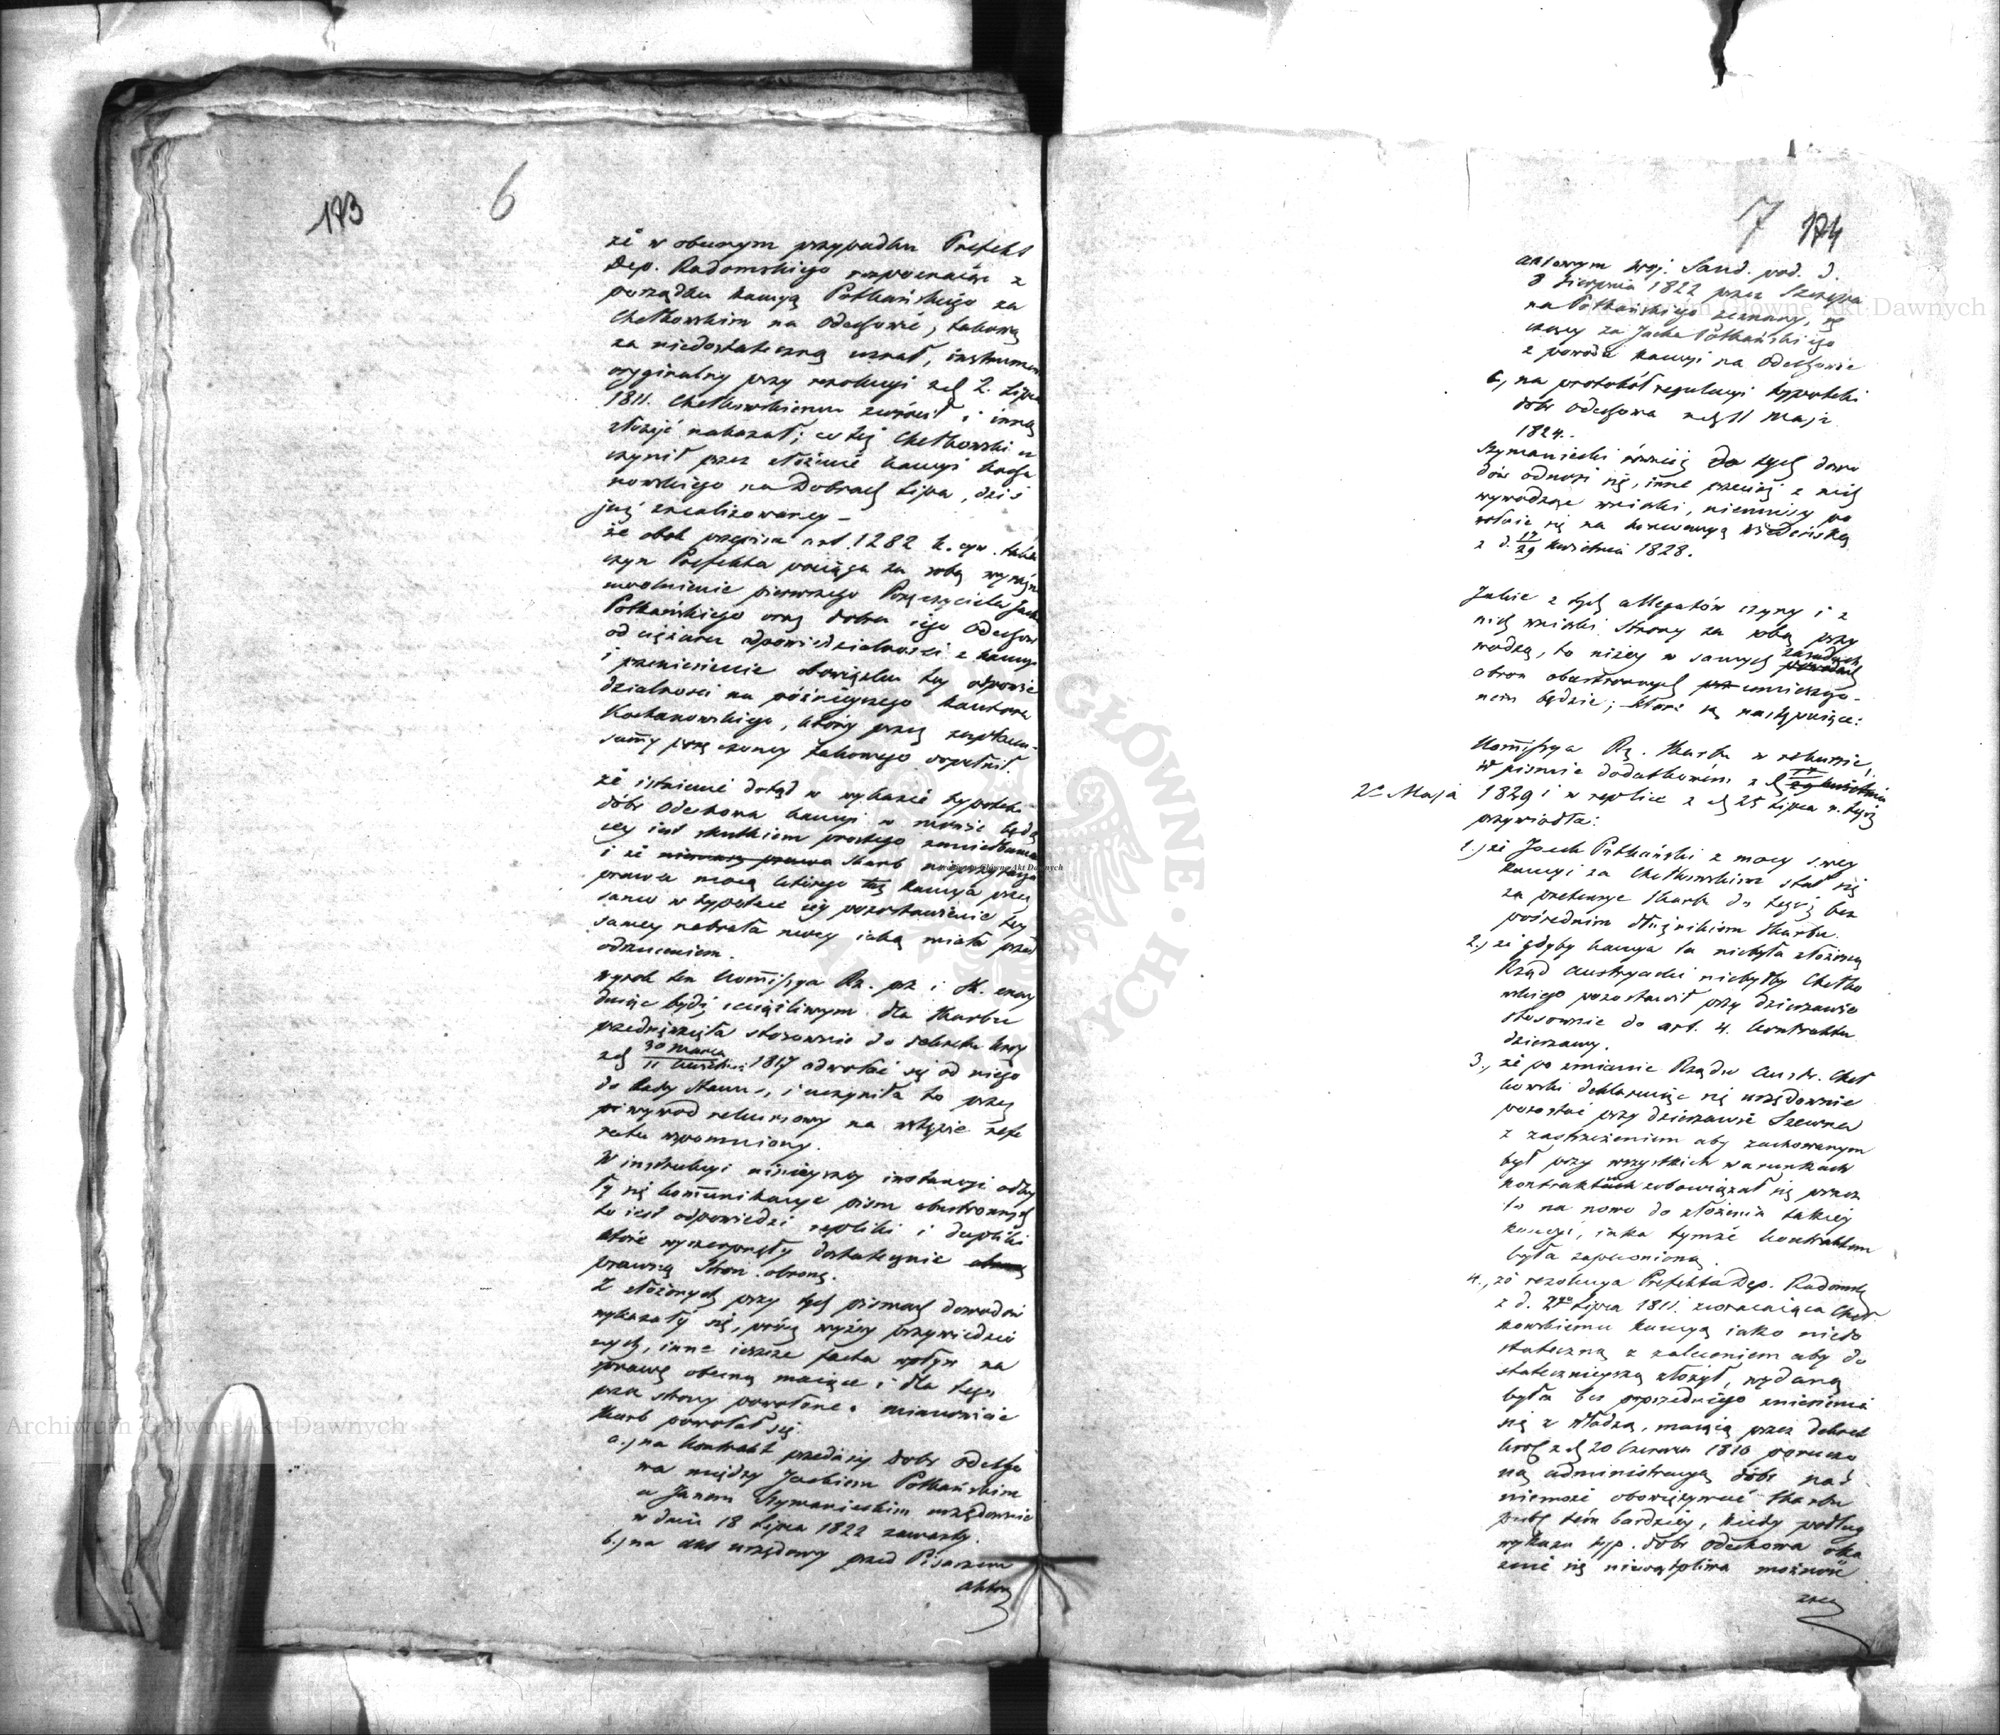 173
6
że w obecnym przypadku Prefekt
Dep. Radomskiego rozpoznając z
porządku kaucyą Potkańskiego za
Chełkowskim na Odechowie, takową
za niedostateczną uznał, instrument
oryginalny przy rezolucyi z d. 2. Lipca
1811. Chełkowskiemu zwrócił i inną
złożyć nakazał; co też Chełkowski u
czynił przez złożenie kaucyi Kocha
nowskiego na Dobrach Lipa, dziś
już zrealizowaney –
że obok przepisu art. 1282 k. cyw. takowy
czyn Prefekta pociąga za sobą wyraźne
uwolnienie pierwszego Poręczyciela Jacka
Potkańskiego oraz dobra iego Odechow
od ciężaru odpowiedzialności z kaucyi
i przeniesienie obowiązku tey odpowie
dzialności na późnieyszego kautora
Kochanowskiego, który przez zapłacenie
summy poręczoney takowego dopełnił.
że istnienie dotąd w wykazie hypotecz
dóbr Odechowa kaucyi w mowie będą
cey iest skutkiem prostego zaniedbania
i że nie Skarb nieprzyznaje
prawa mocą którego taż kaucya przez
samo w hypotece iey pozostawienie tey
samey nabrała mocy iaką miała przed
odrzuceniem.
Wyrok ten Kommissya Rz. prz i Sk. znay
duiąc bydź uciążliwym dla Skarbu
przedsięwzięła stosownie do dekretu Króg
z d. 30 Marca / 11 Kwietnia 1817 odwołać się od niego
do Rady Stanu, i uczyniła to przez
piérwywód rekursowy na wstępie refe
ratu wspomniony.
W instrukcyi ninieyszey instancyi odby
ły się kommunikacye pism obustronnych
to iest odpowiedzi repliki i dupliki
które wyczerpnęły dostatecznie
prawną Stron obronę.
Z złożonych przy tych pismach dowodów
wykazały się, prócz wyżey przywiedzio
nych, inne ieszcze facta wpływ na
sprawę obecną maiące i dla tego
prze strony powołane. mianowicie
Skarb powołał się
a., na kontrakt przedaży dóbr Odecho
wa między Jackiem Potkańskim
a Janem Szymanieckim urzędownie
w dniu 18 Lipca 1822 zawarty.
b., na akt urzędowy przed Pisarzem
aktow
7 174
aktowym woj. Sand. pod. d.
8 Sierpnia 1822 przez Szczepa
na Potkańskiego zeznany, rę
czący za Jacka Potkańskiego
z powodu kaucyi na Odechowie
c., na protokół regulacyi hypoteki
dóbr Odechowa z d. 11 Maja
1824.
Szymaniecki również do tych dowo
dów odnosi się, inne przecież z nich
wywodząc wnioski, niemniey po
wołuie się na konwencyą Wiedeńską
z d. 17/29 Kwietnia 1828.
Jakie z tych allegatów czyny i z
nich wnioski Strony za sobą przy
wodzą, to niżey w samych zasadach
obron obustronnych umieszczo-
nem będzie; które są następuiące:
Kommissya Rz. Skarbu w rekursie,
w pismie dodatkowém z d. 17/29 Kwietnia
2. Maja
1829 i w replice z d. 25 Lipca r. tegoż
przywiodła:
1., że Jacek Potkański z mocy swey
kaucyi za Chełkowskim stał się
za pretensye Skarbu do tegoż bez
pośrednim dłużnikiem Skarbu.
2., że gdyby kaucya ta niebyła złożoną
Rząd Austryacki niebyłby Chełko
wskiego pozostawił przy dzierżawie
stosownie do art. 4. kontraktu
dzierżawy.
3., że po zmianie Rządu Austr. Cheł
kowski deklaruiąc się urzędownie
pozostać przy dzierżawie Szewna
z zastrzeżeniem aby zachowanym
był przy wszystkich warunkach
kontraktu zobowiązał się przez
to na nowo do złożenia takiey
kaucyi, iaka tymże kontraktem
była zapewnioną.
4., że rezolucya Prefekta Dep. Radomsk
z d. 2go Lipca 1811. zwracaiąca Cheł
kowskiemu kaucyą iako niedo
stateczną z zaleceniem aby do
statecznieyszą złożył, wydaną
była bez poprzedniego zniesienia
się z władzą, maiącą przez dekret
Król z d. 20 Czerwca 1810 poruczo
ną administracyą dóbr nad
niemoże obowiązywać Skarbu
publ tém bardziey, kiedy podług
wykazu hyp. dóbr Odechowa oka
zuie się niewątpliwa możność